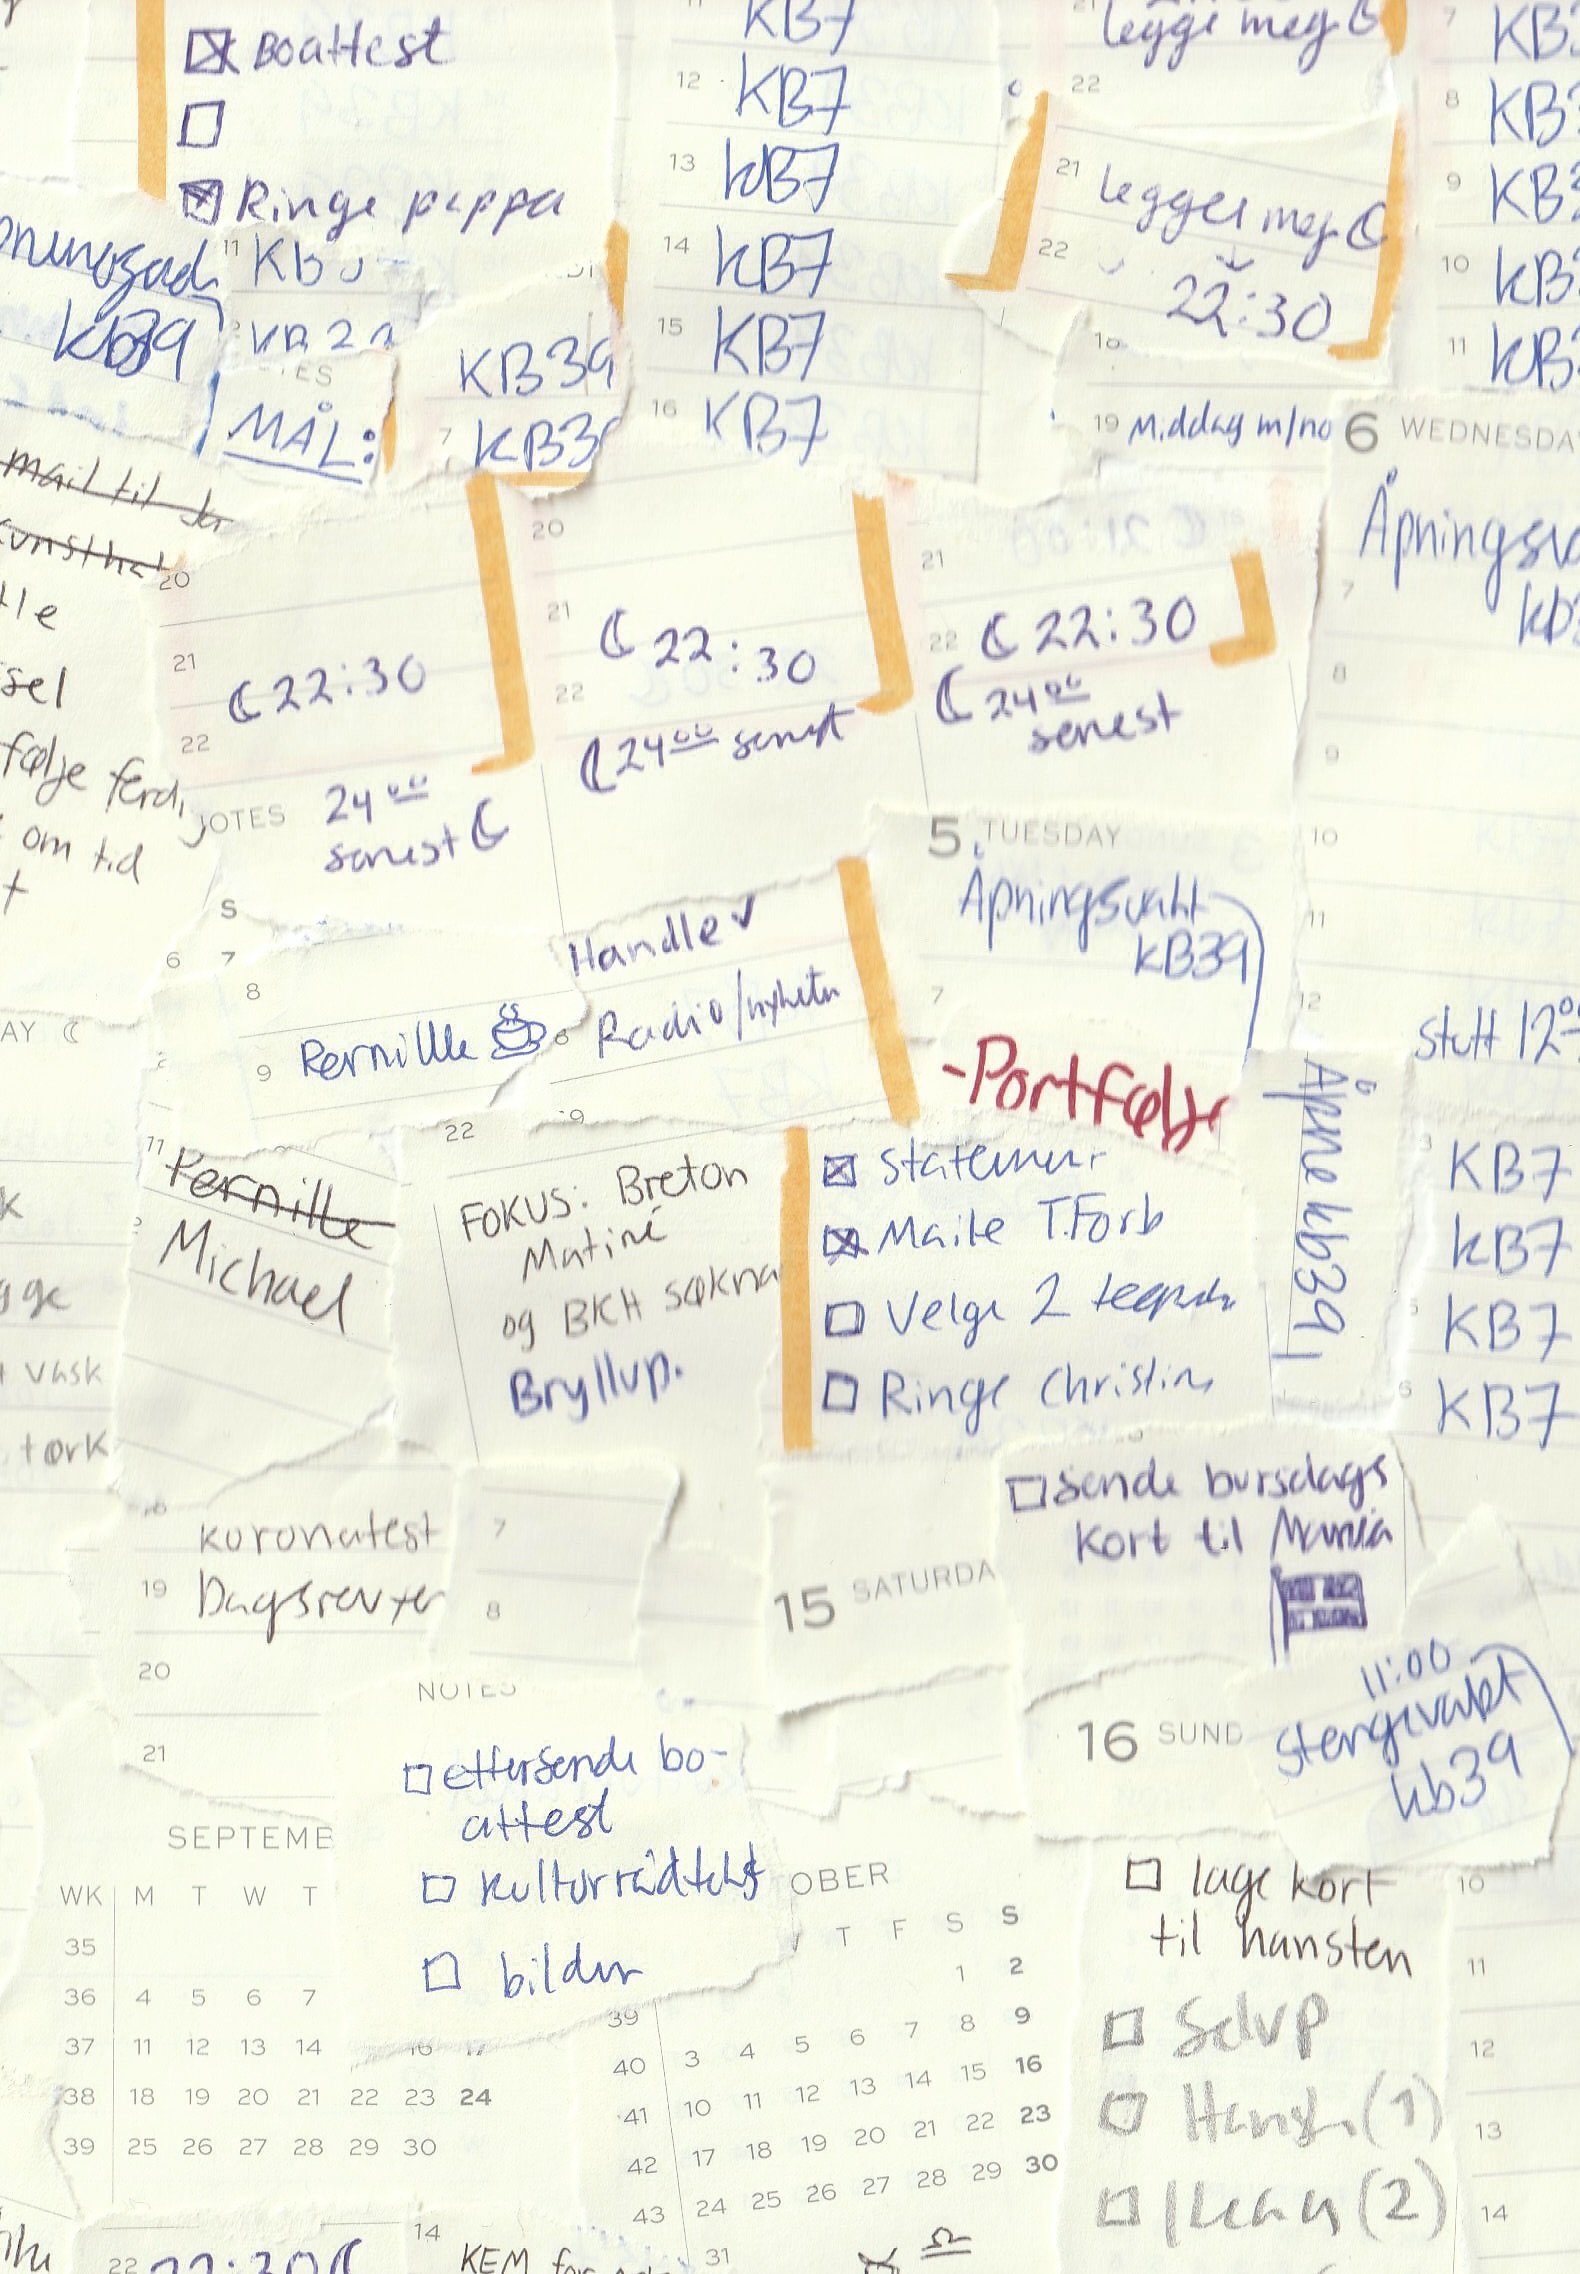 Boattest
Ringe pappa
11 Kb
KB39
KB39
7 KB39
NOTES
MÅL:
KB7
12 KB7
13 KB7
14 KB7
15 KB7
16 KB7
legge meg
22
21 legger meg
22
22:30
19 Middag m/no
7
8
9
10
11
6 WEDNESDAY
Åpningsv
7
8
9
10
11
12
Slutt 12
mail til
tle
sel
følje ferdi
om tid
t
20
21
22:30
22
NOTES 24 00
senest
20
21
22:30
22
24 00 senest
21
22 22:30
24 00
senest
5 TUESDAY
Åpningsvakt
KB39
7
-Portfølje
S
6 7
8
9 Pernille
Handle
Radio/nyheter
9
AY
11 Pernille
Michael
22
FOKUS: Breton
Matiné
og BKH søkna
Bryllup.
Statement
Maile T.Forb
Velge 2
Ringe Christin
Åpne kb39
KB7
KB7
KB7
KB7
k
gge
vask
tørk
koronatest
19 Dagsrevyen
20
21
7
8
15 SATURDA
Sende bursdags
kort til Maria
16 SUND
11:00
Stengevakt
kb39
NOTES
ettersende bo-
attest
kulturrådtekst
bilder
SEPTEME
WK M T W T
35
36 4 5 6 7
37 11 12 13 14 16 17
38 18 19 20 21 22 23 24
39 25 26 27 28 29 30
OBER
T F S S
39 1 2
40 3 4 5 6 7 8 9
41 10 11 12 13 14 15 16
42 17 18 19 20 21 22 23
43 24 25 26 27 28 29 30
31
lage kort
til hansten
(1)
(2)
10
11
12
13
14
22 22:30
14
KEM for